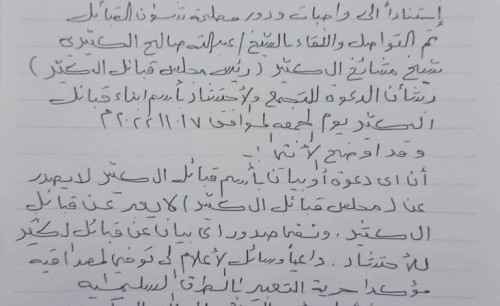 إستناداً الى واجبات ودور مصلحة شؤون القبائل
تم التواصل واللقاء بالشيخ / عبدالله صالح الكثيري
شيخ مشائخ ال كثير (رئيس مجلس قبائل ال كثير)
بشأن الدعوة للتجمع والاحتشاد بأسم ابناء قبائل
ال كثير يوم الجمعه الموافق ٢٠٢٢.١٠.٧م
وقد اوضح لأنتما :-
أن اي دعوة أو بيان بأسم قبائل ال كثير لا يصدر
عن (مجلس قبائل ال كثير) لا يعبر عن قبائل
ال كثير . ونفى صدور اي بيان عن قبائل ال كثير
للأحتشاد . داعياً وسائل الأعلام الى توخي المصداقية
مؤكداً حرية التعبير بالطرق السليميه